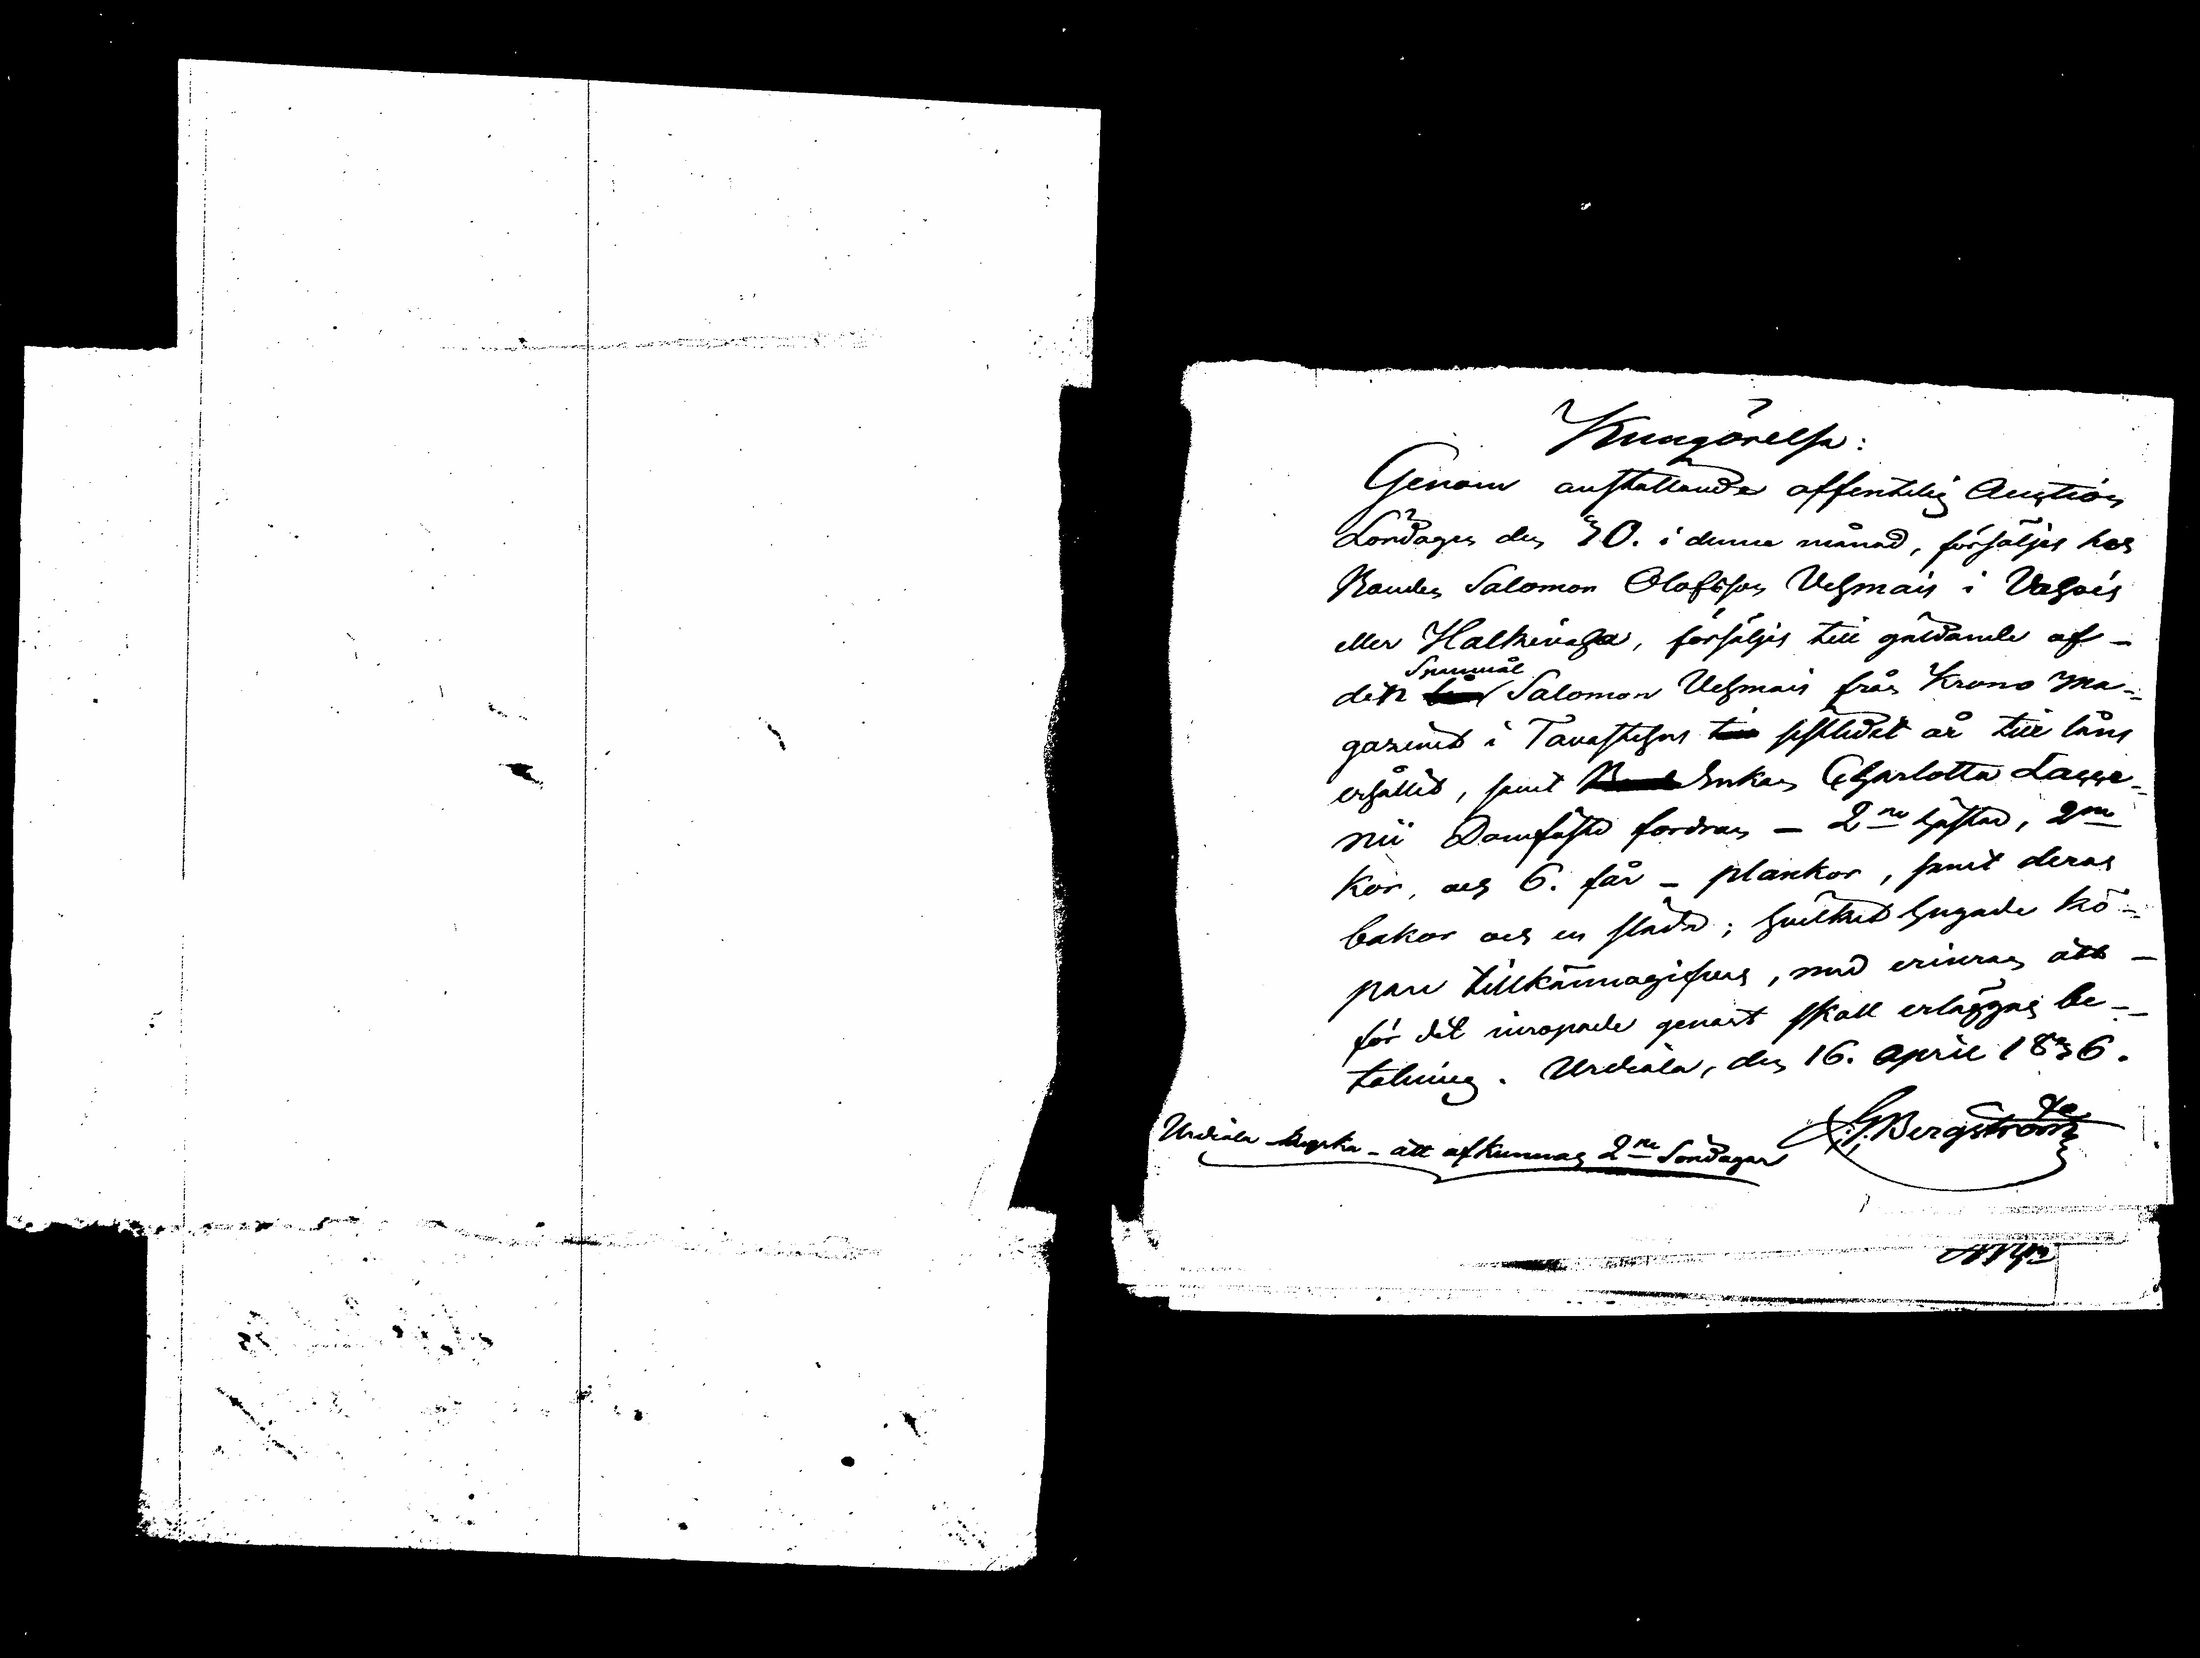 Kungörelse:
Genom anställande offentelig Auction
Lördagen den 30. i denne månad, försäljes hos
Bonden Salomon Olofsson Uhmais i Vahois
eller Halkivaha, försäljes till gäldande af -
det Spanmål Salomon Uhmais från Krono Ma-
gazinet i Tavastehus sistledet år till låns
erhållit, samt Enkan Charlotta Lagge-
nii Domfäste fordran - 2ne hästar, 2ne
kor, och 6. får - plankor, samt deras
bakor och en släda; hvilket hugade kö-
pare tillkännagifves, med erinran att -
för det inropade genast skall erläggas be-
talning. Urdiala, den 16. April 1836.
G. Bergström
Urdiala kyrka - att afkunnas 2ne Söndagar